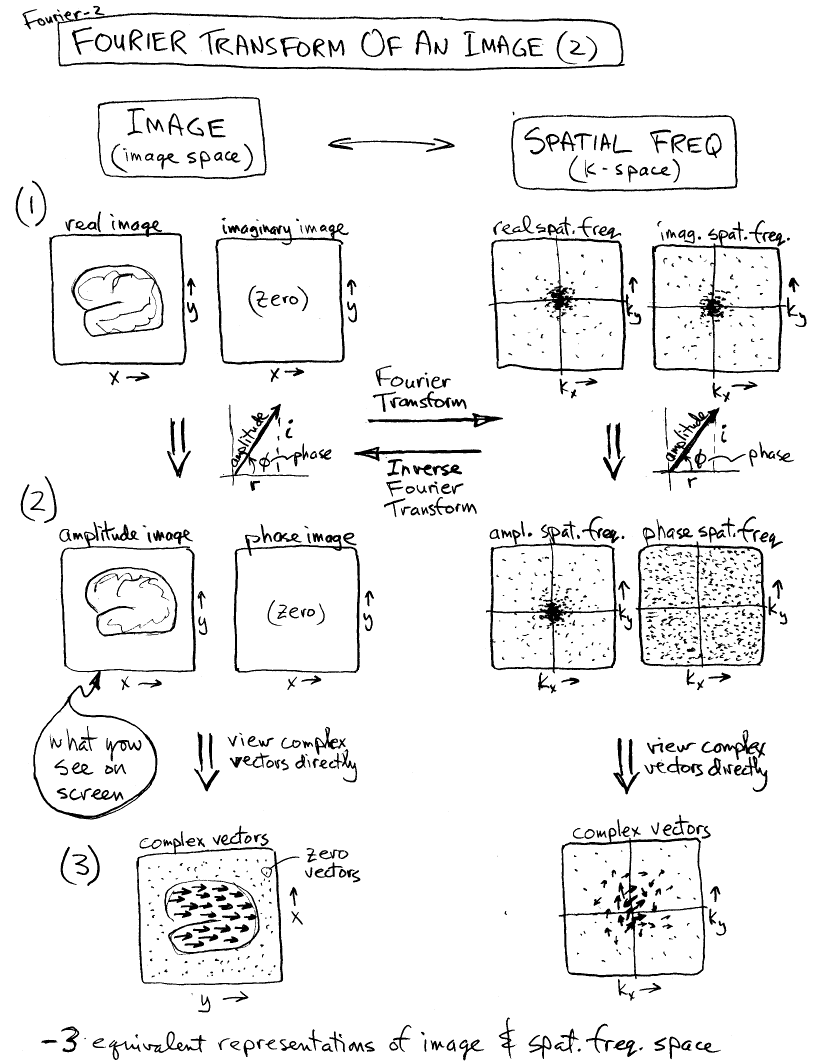 Fourier-2
FOURIER TRANSFORM OF AN IMAGE (2)
IMAGE
(image space)
SPATIAL FREQ
(k-space)
(1)
real image
imaginary image
real spat. freq.
imag. spat. freq.
(zero)
y
y
ky
ky
x
x
kx
kx
Fourier
Transform
amplitude
i
ϕ
phase
r
Inverse
Fourier
Transform
amplitude
i
ϕ
phase
r
(2)
amplitude image
phase image
ampl. spat. freq.
phase spat. freq.
(zero)
y
y
ky
ky
x
x
kx
kx
what you
see on
screen
view complex
vectors directly
view complex
vectors directly
(3)
complex vectors
zero
vectors
complex vectors
x
ky
y
kx
- 3 equivalent representations of image & spat. freq. space